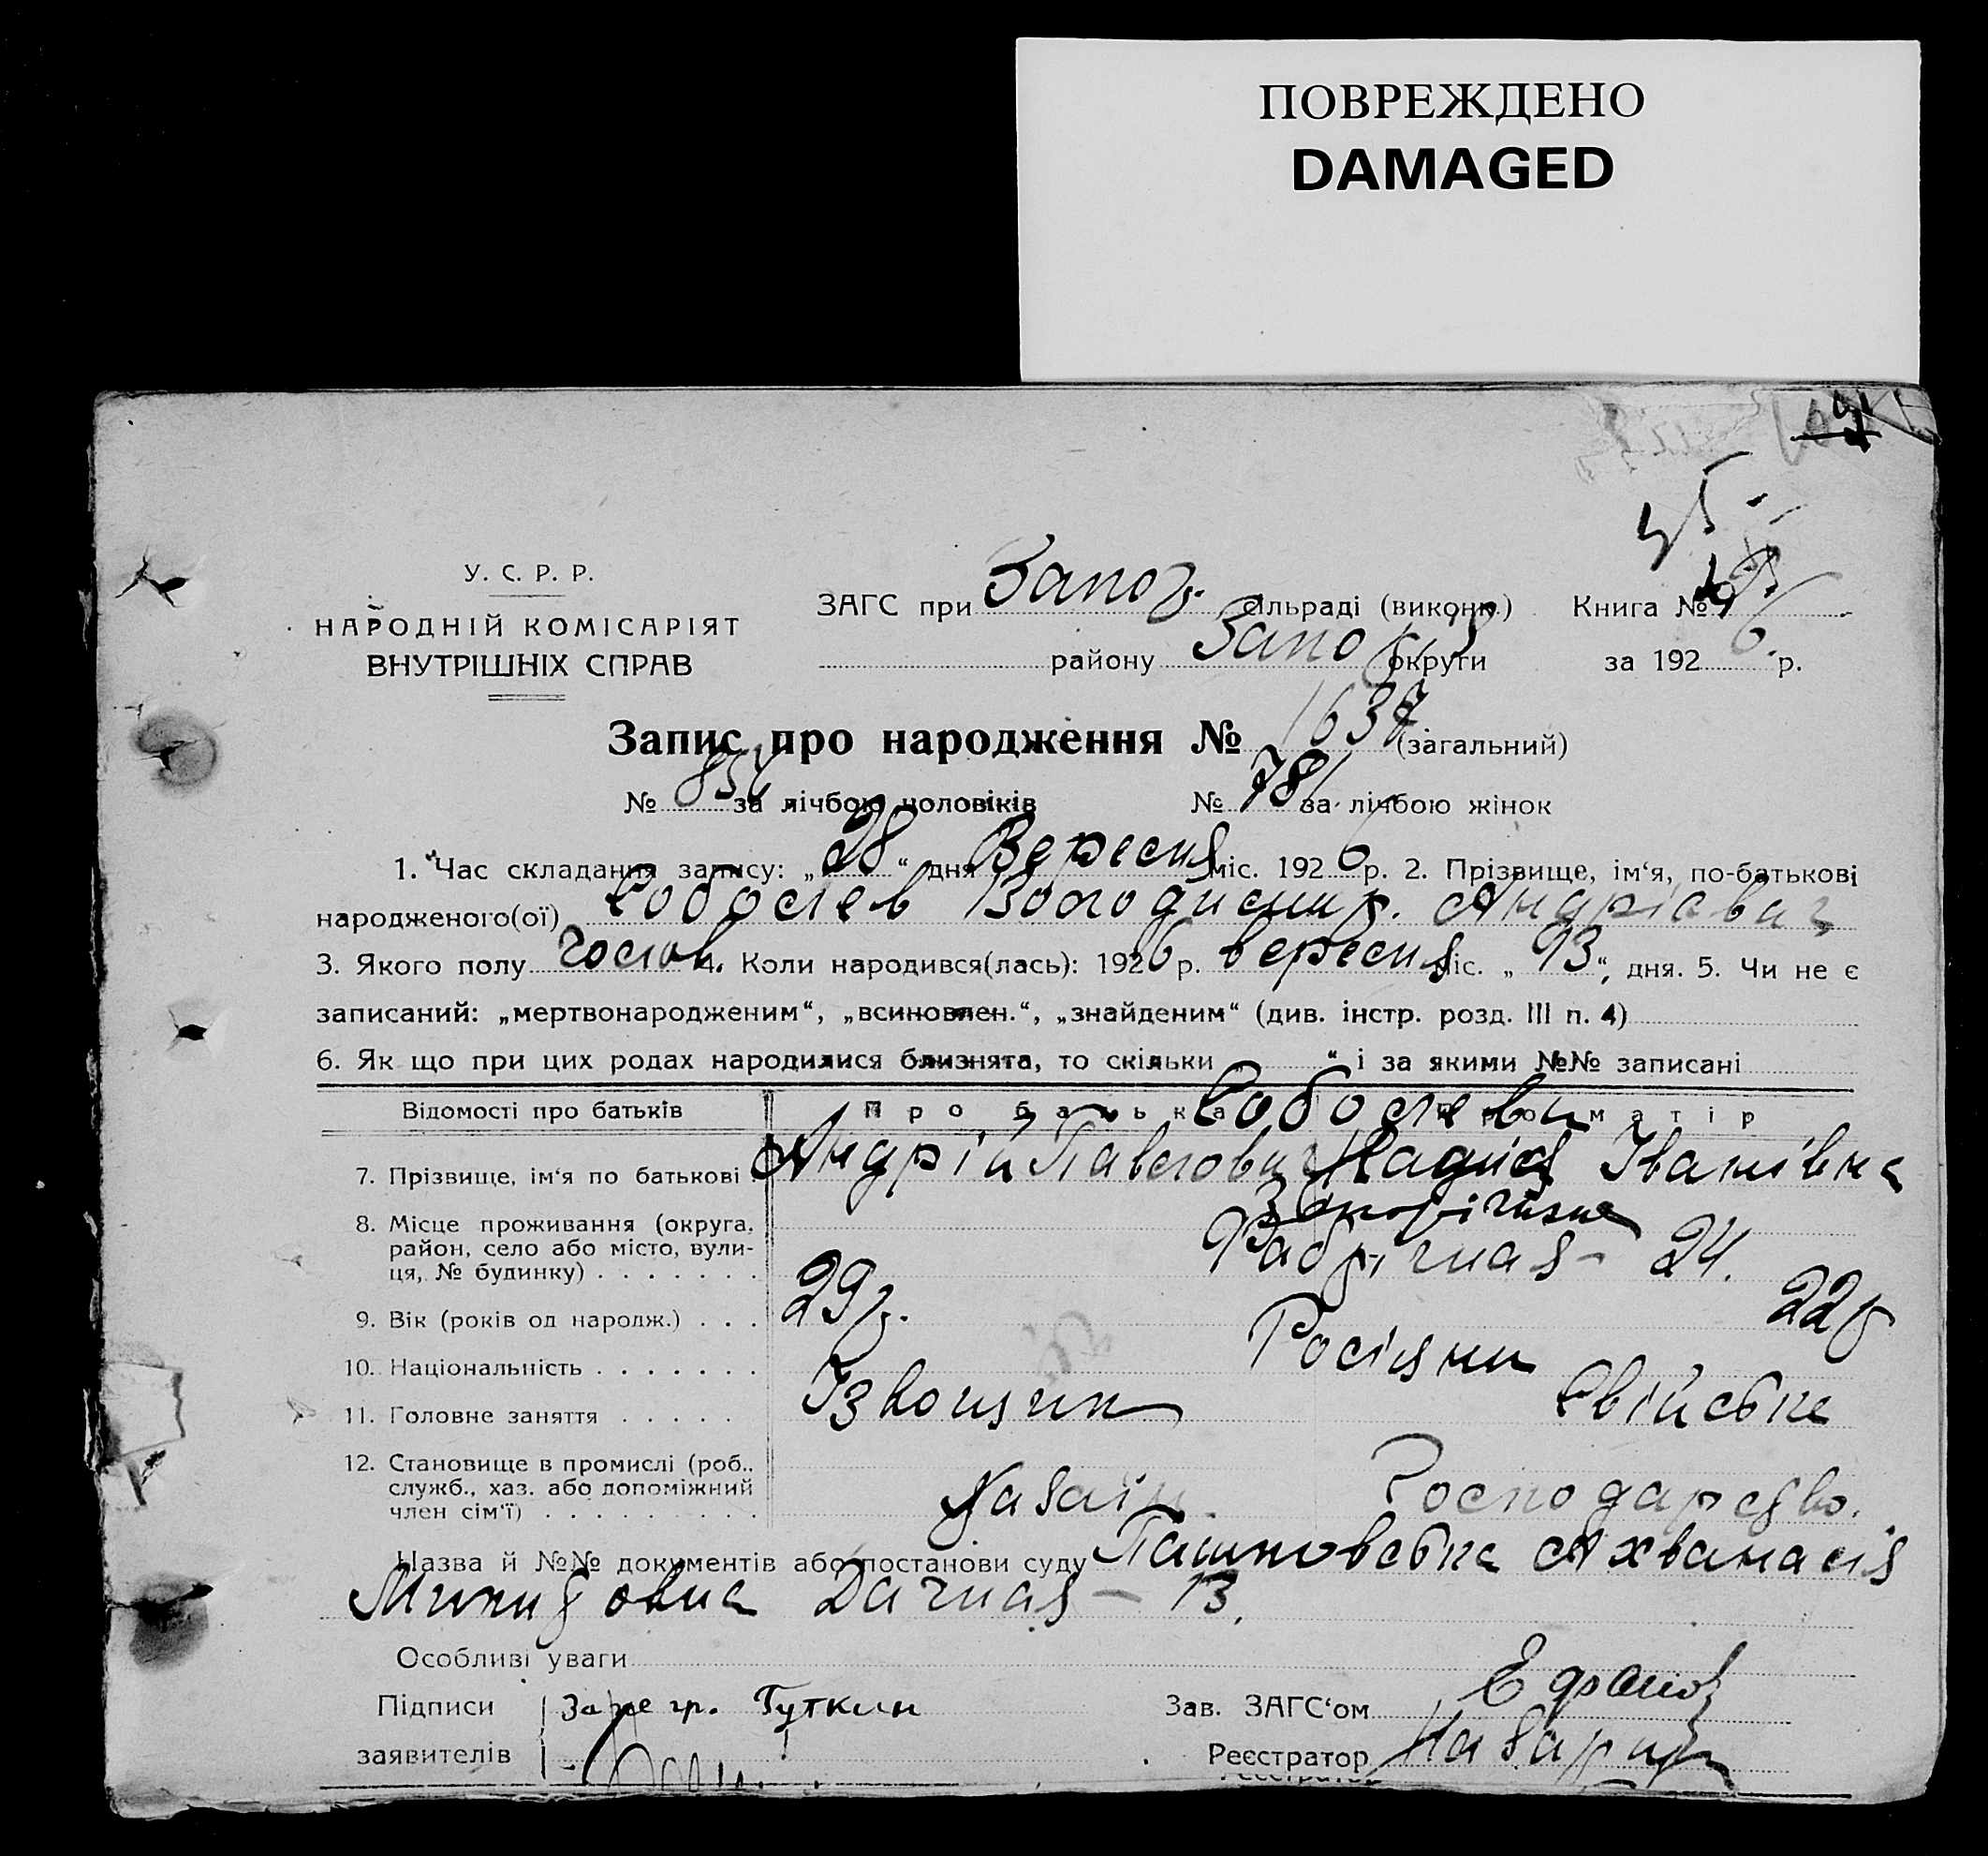 ПОВРЕЖДЕНО
DAMAGED
У. С. Р. Р.
НАРОДНІЙ КОМІСАРІЯТ
ВНУТРІШНІХ СПРАВ
ЗАГС при Запоз. сільраді (виконк.) Книга №
району Запо округи за 1926 р.
Запис про народження № 1637 (загальний)
№ 856 за лічбою чоловіків № 781 за лічбою жінок
1. Час складання запису: „28“ дня Вересня міс. 1926 р. 2. Прізвище, ім‘я, по-батькові
народженого(ої) Соболев Володимир. Андрієвич
3. Якого полу чолов. 4. Коли народився(лась): 1926 р. вересня міс. „13“, дня. 5. Чи не є
записаний: „мертвонародженим“, „всиновлен.“, „знайденим“ (див. інстр. розд. III п. 4)
6. Як що при цих родах народилися близнята, то скільки “ і за якими №№ записані
Відомості про батьків Про батька Про матір
Соболеви
7. Прізвище, ім‘я по батькові Андрій Павлович Надія Іванівна
8. Місце проживання (округа, район, село або місто, вулиця, № будинку) Запоріжжя
Фабрічная – 24.
9. Вік (років од народж.) 29р. 22р
10. Національність Росіяни
11. Головне заняття Ізвощик Свійське
12. Становище в промислі (роб., служб., хаз. або допоміжний член сім‘ї) Хазаїн Господарство.
Назва й №№ документів або постанови суду Пашковська
Дачная – 13.
Особливі уваги
Підписи заявителів гр. Гуткин
Зав. ЗАГС‘ом
Реєстратор